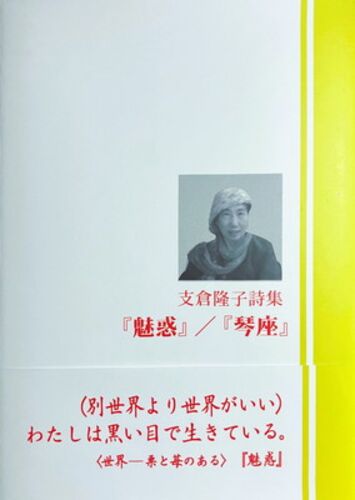 支倉隆子詩集
『魅惑』／『琴座』
（別世界より世界がいい）
わたしは黒い目で生きている。
〈世界―栗と苺のある〉『魅惑』